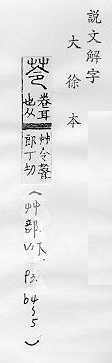 說文解字
大徐本
苓
卷耳也从艸令聲郎丁切
(艸部.1下.P3.b4~5)